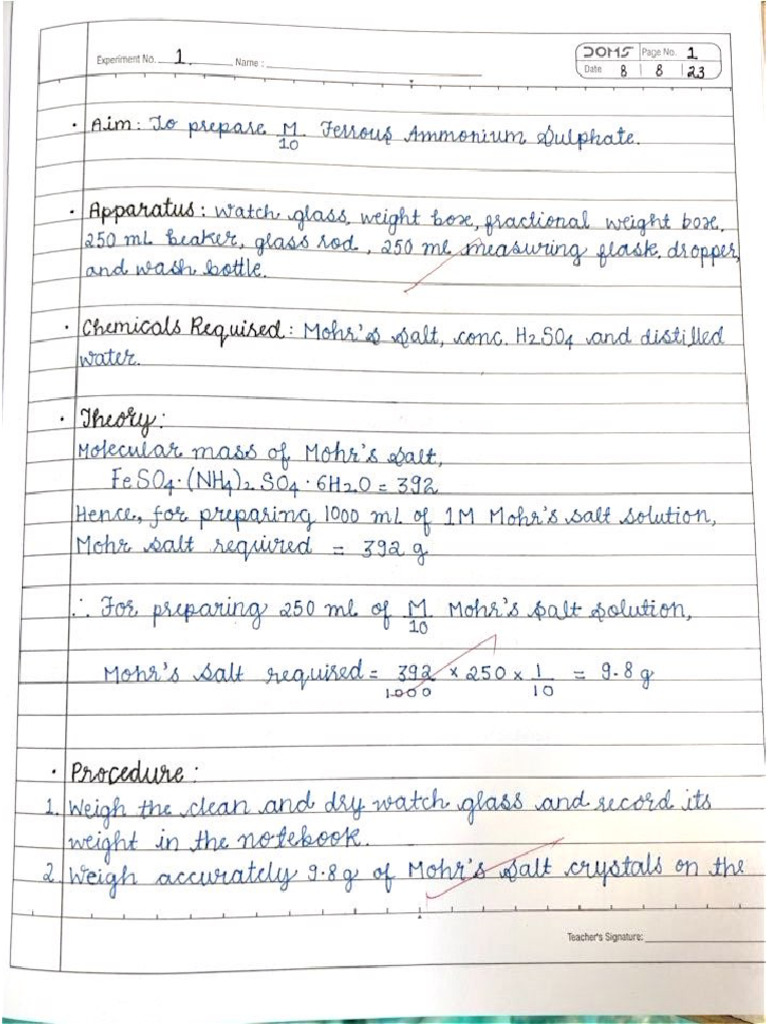 Experiment No. 1. Name :
DOMS Page No. 1
Date 8 8 23
• Aim: To prepare M/10 Ferrous Ammonium Sulphate.
• Apparatus: Watch glass, weight box, fractional weight box,
250 mL beaker, glass rod, 250 mL measuring flask, dropper,
and wash bottle.
• Chemicals Required: Mohr's Salt, conc. H2SO4 and distilled
water.
• Theory:
Molecular mass of Mohr's Salt,
FeSO4·(NH4)2SO4·6H2O = 392
Hence, for preparing 1000 mL of 1M Mohr's salt solution,
Mohr salt required = 392 g
∴ For preparing 250 mL of M/10 Mohr's Salt Solution,
Mohr's Salt required = 392/1000 × 250 × 1/10 = 9.8 g
• Procedure:
1. Weigh the clean and dry watch glass and record its
weight in the notebook.
2. Weigh accurately 9.8 g of Mohr's Salt crystals on the
Teacher's Signature: